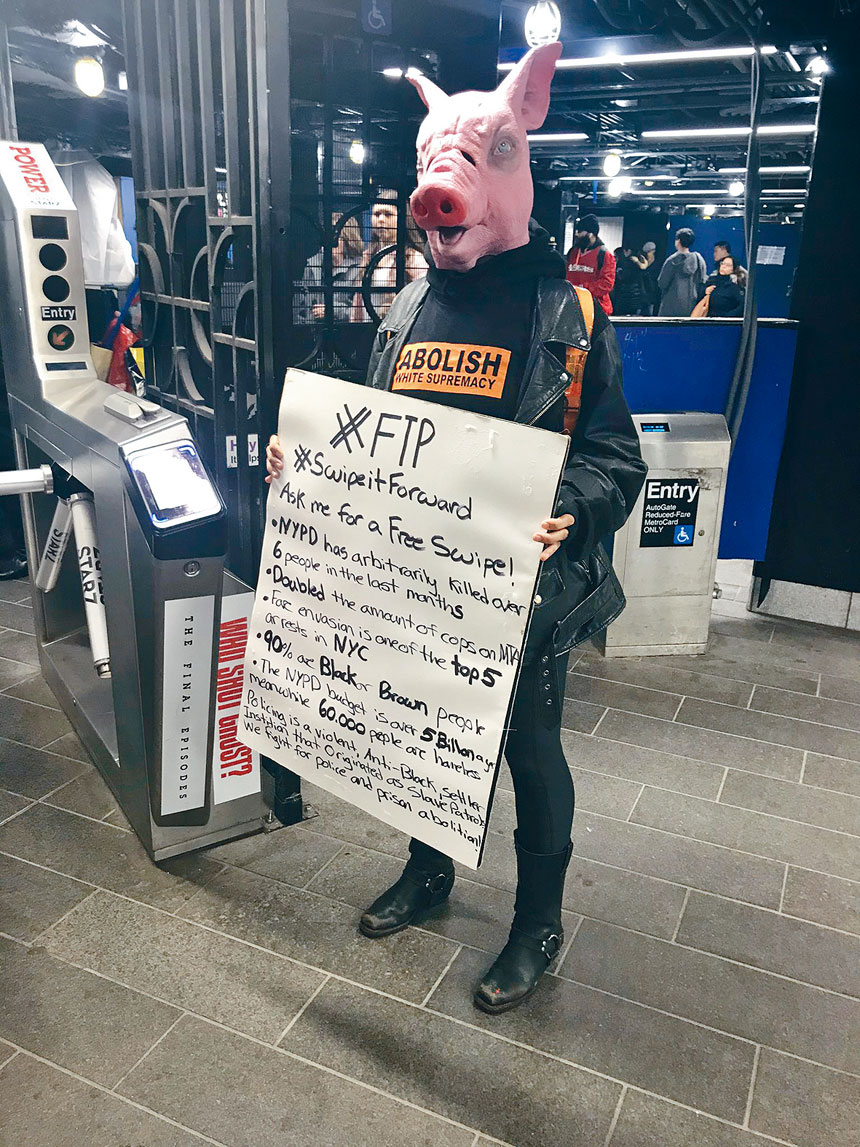 POWER
STARZ
Entry
ABOLISH
WHITE SUPREMACY
#FTP
#SwipeitForward
Ask me for a Free Swipe!
• NYPD has arbitrarily killed over
6 people in the last months
• Doubled the amount of cops on MTA
• Fare envasion is one of the top 5
arrests in NYC
• 90% are Black or Brown people
• The NYPD budget is over 5 Billion a yr
meanwhile 60,000 people are homeless
Policing is a violent, Anti-Black, settler
Institution that Originated as Slave Patrols
We fight for police and prison abolition!
Entry
AutoGate
Reduced-Fare
MetroCard
ONLY
STARZ
STARZ
THE FINAL EPISODES
WHO SHOT GHOST?